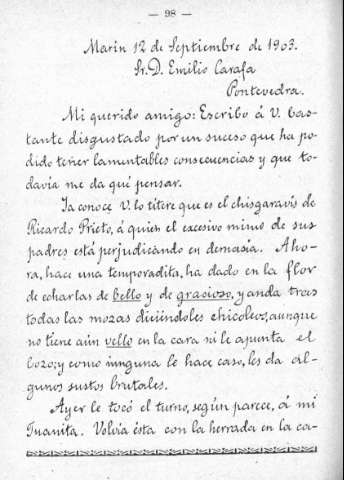 — 98 —
Marín 12 de Septiembre de 1903.
Sr. D. Emilio Carafa
Pontevedra.
Mi querido amigo: Escribo á V. bas-
tante disgustado por un suceso que ha po-
dido tener lamentables consecuencias y que to-
davía me da qué pensar.
Ya conoce V. lo títere que es el chisgaravís de
Ricardo Prieto, á quien el excesivo mimo de sus
padres está perjudicando en demasía. Aho-
ra, hace una temporadita, ha dado en la flor
de echarlas de bello y de gracioso, y anda tras
todas las mozas diciéndoles chicoleos, aunque
no tiene aún vello en la cara ni le apunta el
bozo; y como ninguna le hace caso, les da al-
gunos sustos brutales.
Ayer le tocó el turno, según parece, á mi
Juanita. Volvía ésta con la herrada en la ca-